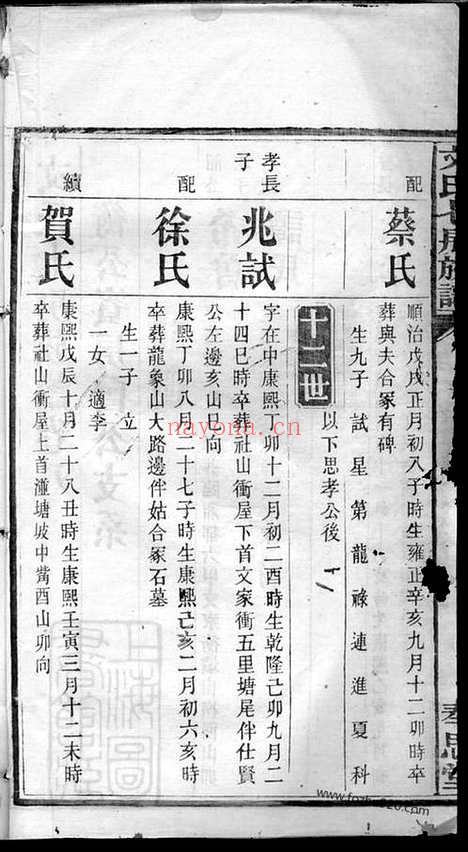 配
蔡氏
順治戊戌正月初八子時生雍正辛亥九月十二卯時卒
葬與夫合冢有碑
生九子 試 星 第 龍 祿 連 進 夏 科
十二世
以下思孝公後
孝長子
兆試
字在中康熙丁卯十二月初二酉時生乾隆己卯九月二
十四巳時卒葬社山衝屋下首文家衝五里塘尾伴仕賢
公左邊亥山巳向
配
徐氏
康熙丁卯八月二十七子時生康熙己亥二月初六亥時
卒葬龍象山大路邊伴姑合冢石墓
生一子 立
一女 適李
續
賀氏
康熙戊辰十月二十八丑時生康熙壬寅三月十二未時
卒葬社山衝屋上首滙塘坡中觜酉山卯向
nayona.cn